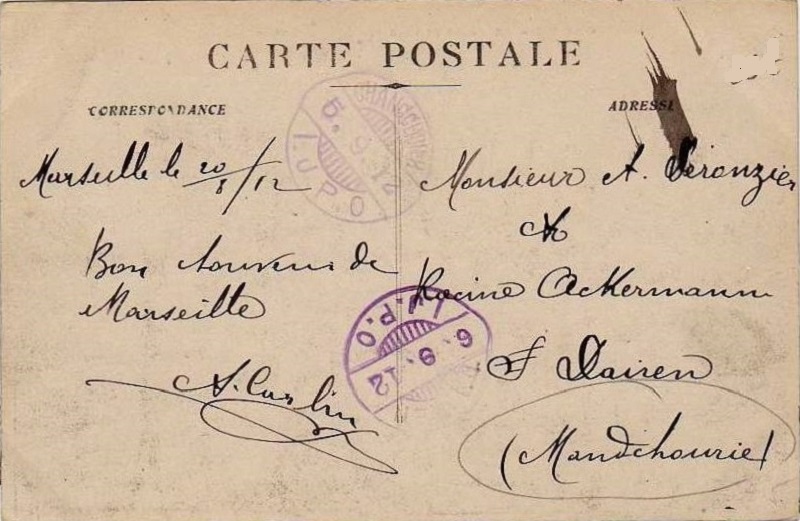 CARTE POSTALE
CORRESPONDANCE
ADRESSE
Marseille le 20/8/12
Bon Souvenir de
Marseille
A. Carlin
Monsieur A. Séronzier
Racine Ackermann
Dairen
(Mandchourie)
5.9.12
I.J.P.O
I.J.P.O
6.9.12